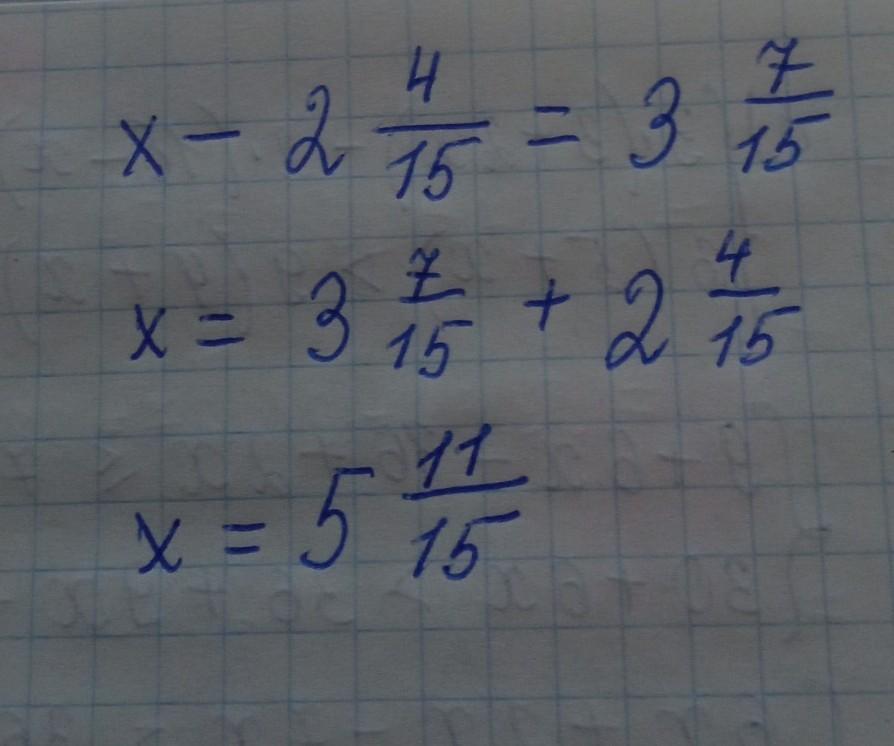 x - 2 4/15 = 3 7/15
x = 3 7/15 + 2 4/15
x = 5 11/15